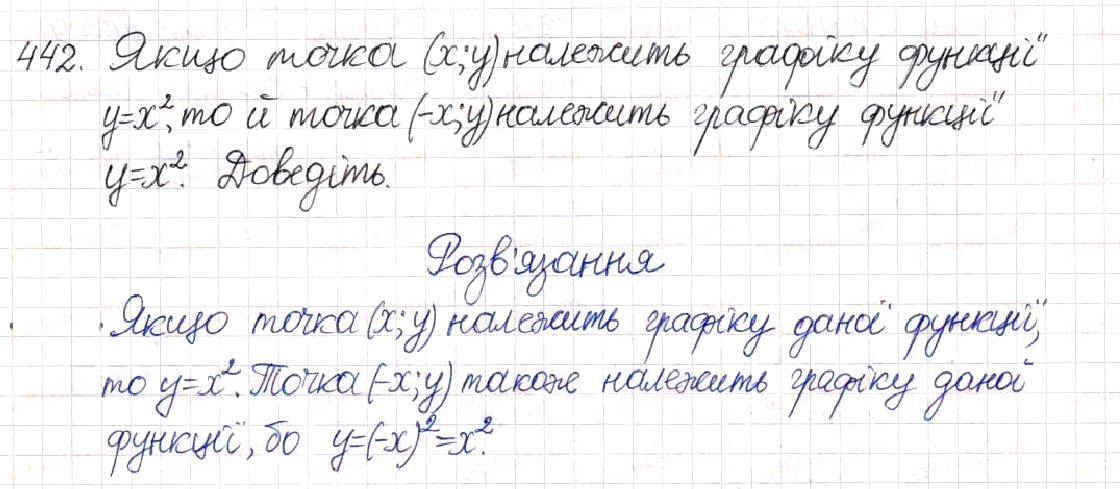 442. Якщо точка (x;y) належить графіку функції
y=x², то й точка (-x;y) належить графіку функції
y=x². Доведіть.
Розв'язання
Якщо точка (x;y) належить графіку даної функції,
то y=x². Точка (-x;y) також належить графіку даної
функції, бо y=(-x)²=x².